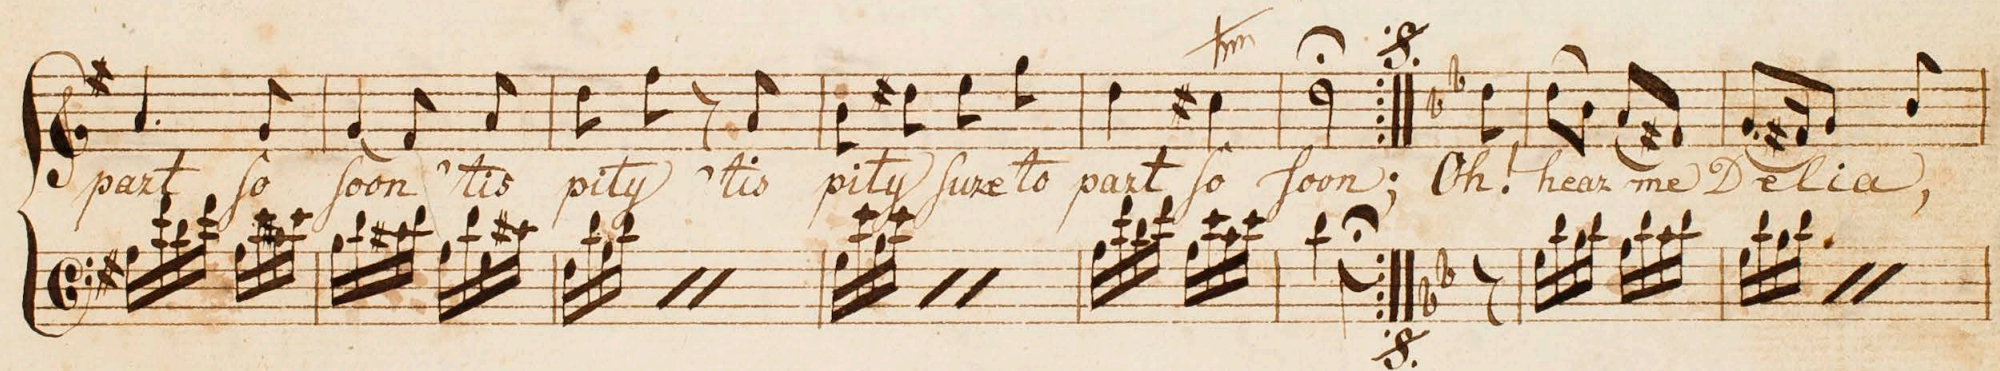 tmm
part so soon 'tis pity 'tis pity sure to part so soon; Oh! hear me Delia,